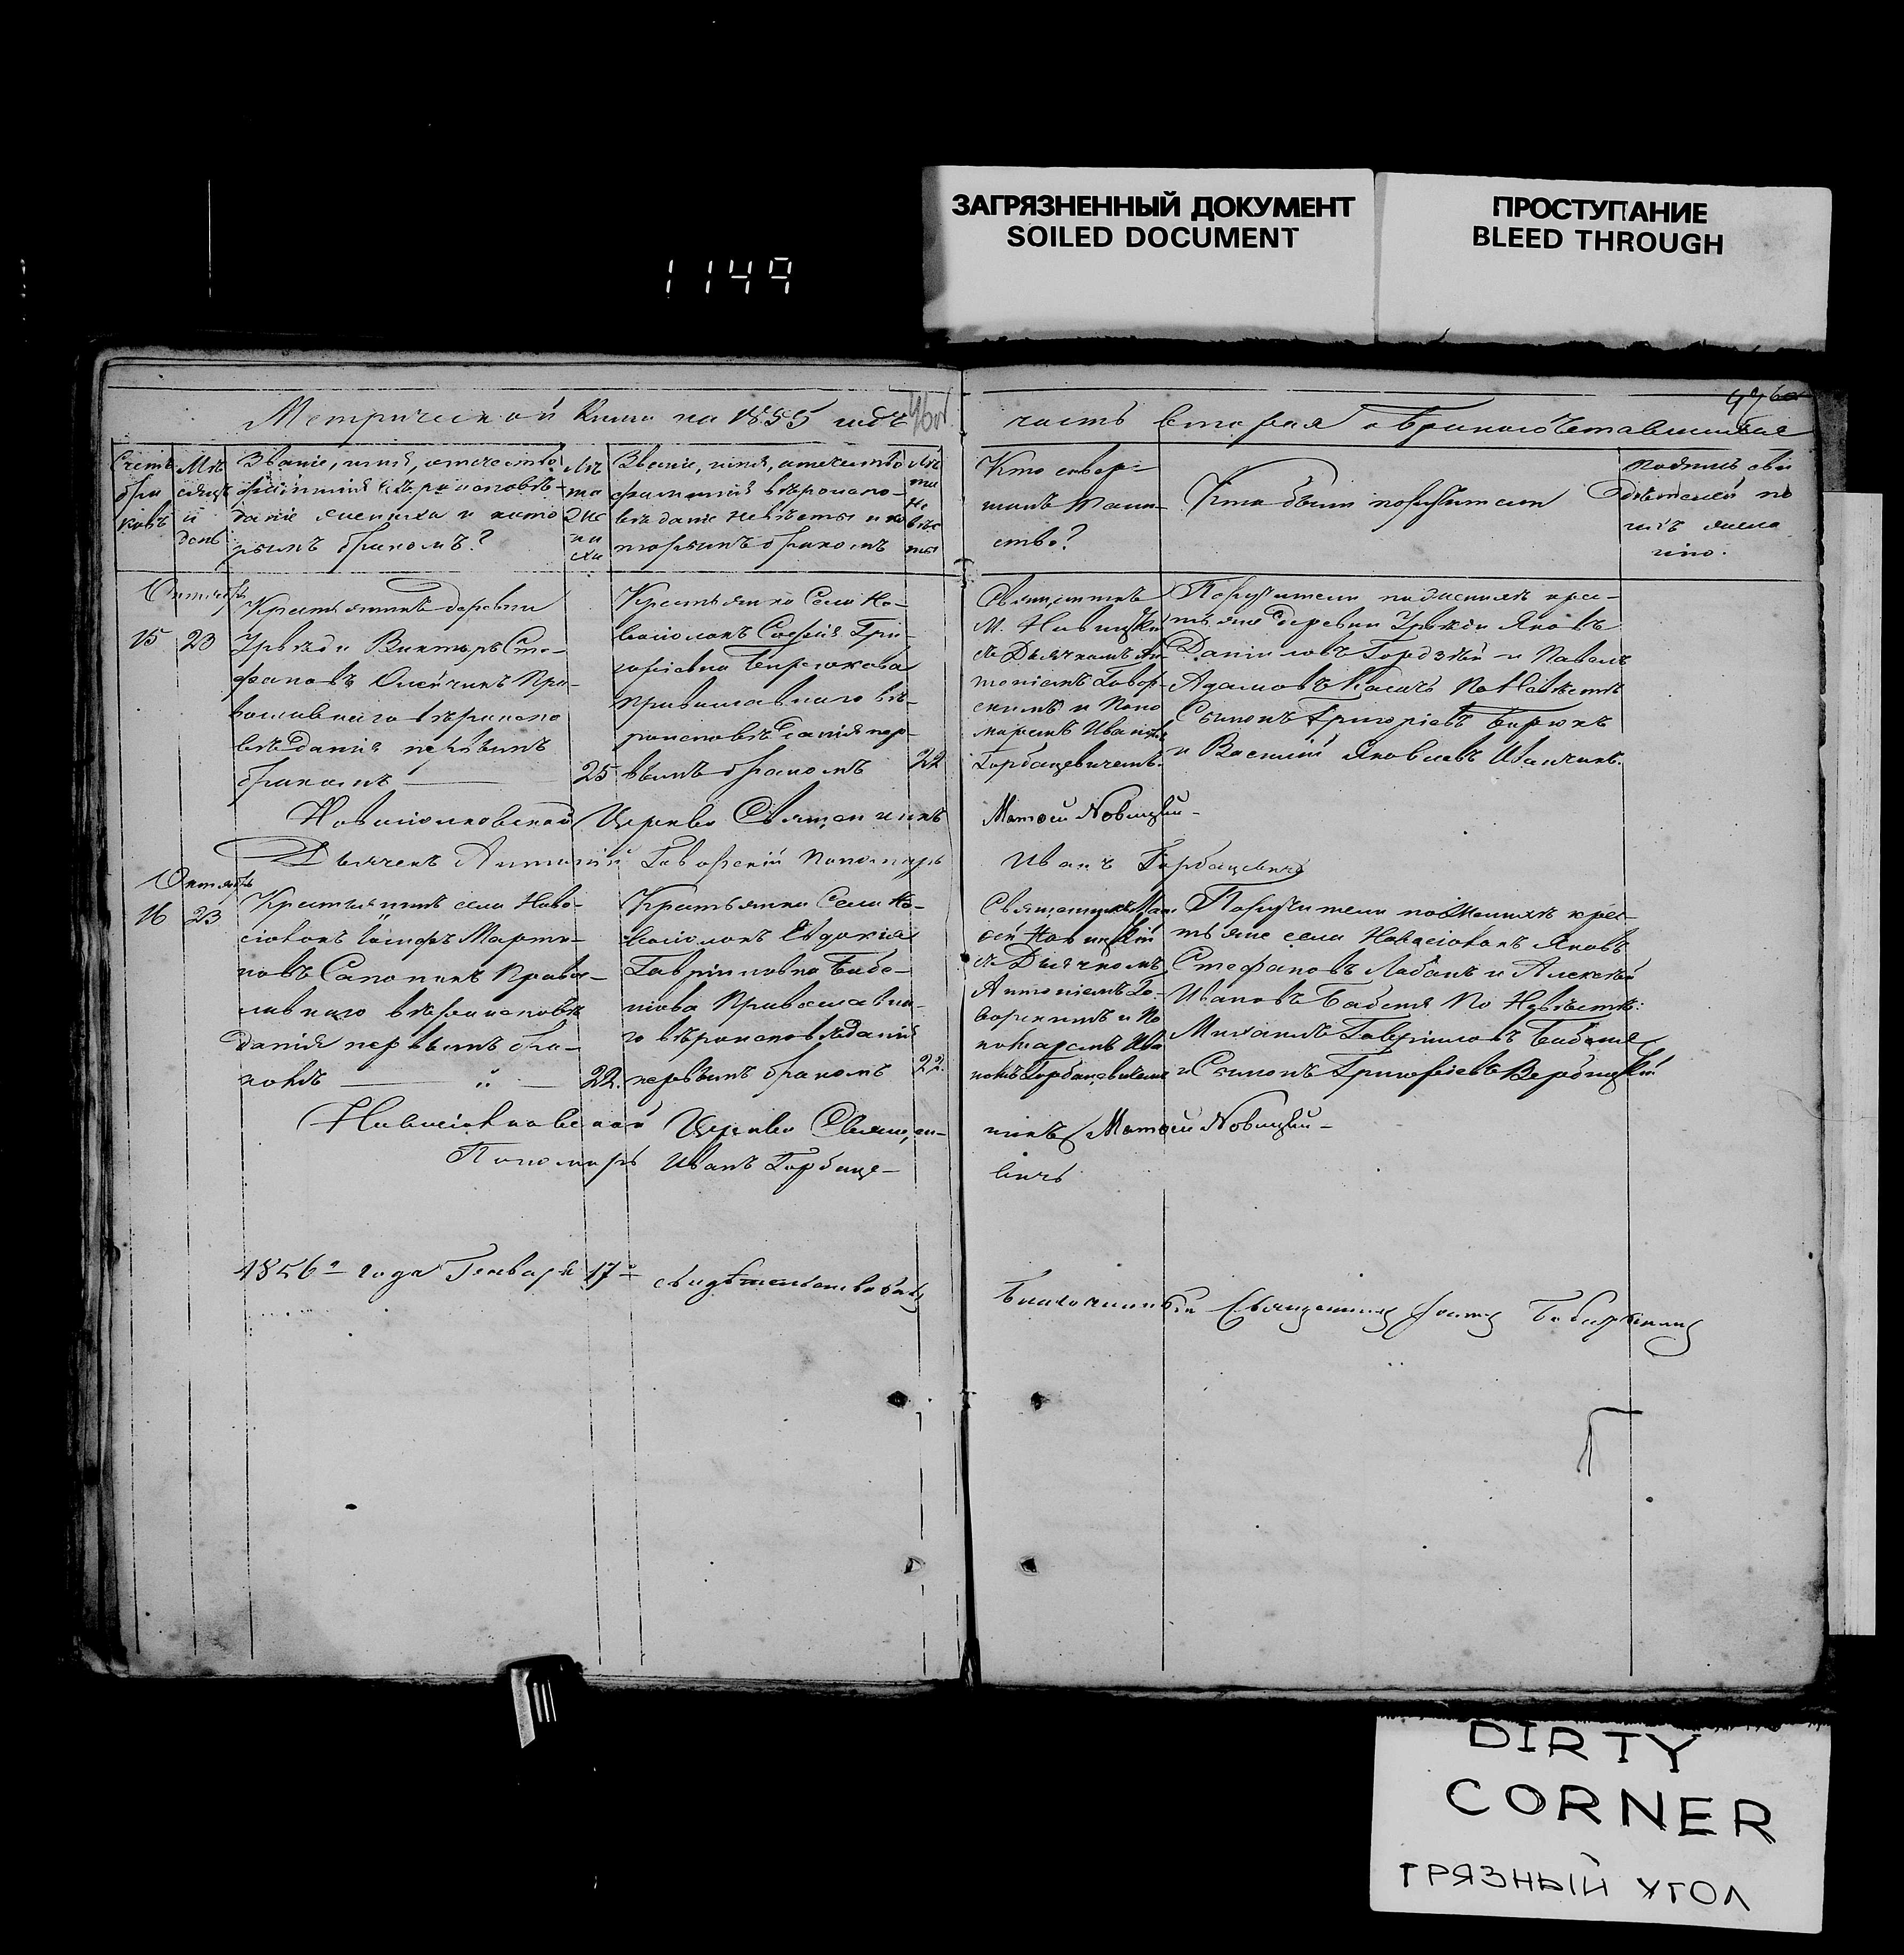 1149
ЗАГРЯЗНЕННЫЙ ДОКУМЕНТ
SOILED DOCUMENT
ПРОСТУПАНИЕ
BLEED THROUGH
Метрической Книги на 1855 годъ
часть вторая о бракосочетавшихся
Счетъ браковъ
Мѣсяцъ и день
Званіе, имя, отечество
фамилія и вѣроисповѣ-
даніе жениха и кото
рымъ бракомъ?
Лѣта жениха
Званіе, имя, отечество
фамилія вѣроиспо-
вѣданіе невѣсты и ко
торымъ бракомъ
Лѣта невѣсты
Кто совер-
шилъ Таин-
ство?
Кто были поручители
подпись сви
дѣтелей по
Октябрь
15 23
Крестьянинъ деревни
Викторъ Сте-
фановъ Пра-
вославнаго вѣроиспо
вѣданія первымъ
бракомъ
25
Крестьянка Села Но-
восіолокъ Софія Гри-
горіевна Бирюкова
православнаго вѣ-
роисповѣданія пер-
вымъ бракомъ
22
Священникъ
М. Новицкій
съ Дьячкомъ Ан-
тоніемъ Говор-
скимъ и Поно
маремъ Иваномъ
Горбацевичемъ.
Поручители по женихѣ крес-
тьяне деревни Яковъ
Даніиловъ и Павелъ
Адамовъ По Невѣстѣ
Сѵмонъ Григоріевъ Бирюкъ
и Василій Яковлевъ Иванчикъ.
Новосіолковской Церкви Священникъ Матѳей Новицкій-
Дьячекъ Антоній Говорскій Пономарь Иванъ Горбацевичъ
Октябрь
16 23
Крестьянинъ села Ново-
сіолокъ Іосифъ Марти-
новъ Сапоникъ Правос-
лавнаго вѣроисповѣ
данія первымъ бра-
комъ
22.
Крестьянка Села Но-
восіолокъ Евдокія
Гавріиловна Бабе-
нева Православна-
го вѣроисповѣданія
первымъ бракомъ
22.
Священникъ Мат-
ѳей Новицкій
съ Дьячкомъ
Антоніемъ Го-
ворскимъ и По
номаремъ Ива
номъ Горбацевичемъ
Поручители по женихѣ крес-
тьяне села Новосіолокъ Яковъ
Стефановъ Лабанъ и Алексѣй
Ивановъ Бабеня По Невѣстѣ:
Михаилъ Гавріиловъ Бабеня
и Сѵмонъ Григоріевъ Вербицкій
Новосіолковской Церкви Священ-
никъ Матѳей Новицкій-
Пономарь Иванъ Горбаце-
вичъ
1856го года Генваря 17го свидѣтельствовалъ
Благочинный Священникъ
DIRTY
CORNER
ГРЯЗНЫЙ УГОЛ